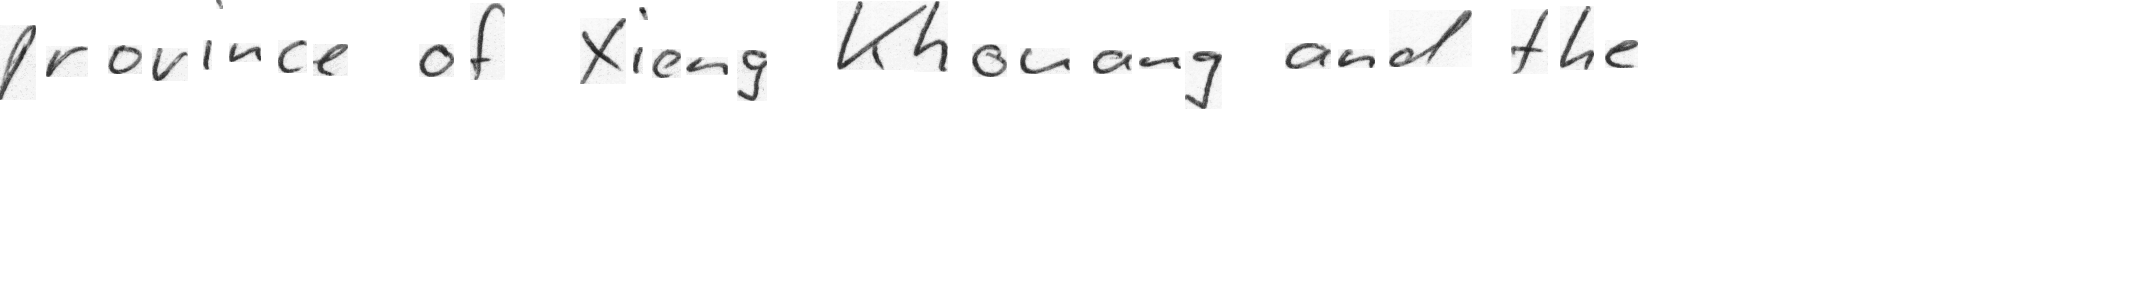 province of Xieng Khouang and the